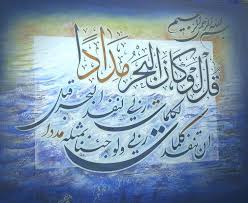 بسم الله الرحمن الرحیم
قل لو کان البحر مدادا
لکلمات ربی لنفد البحر قبل
ان تنفد کلمات ربی ولو جئنا بمثله مددا